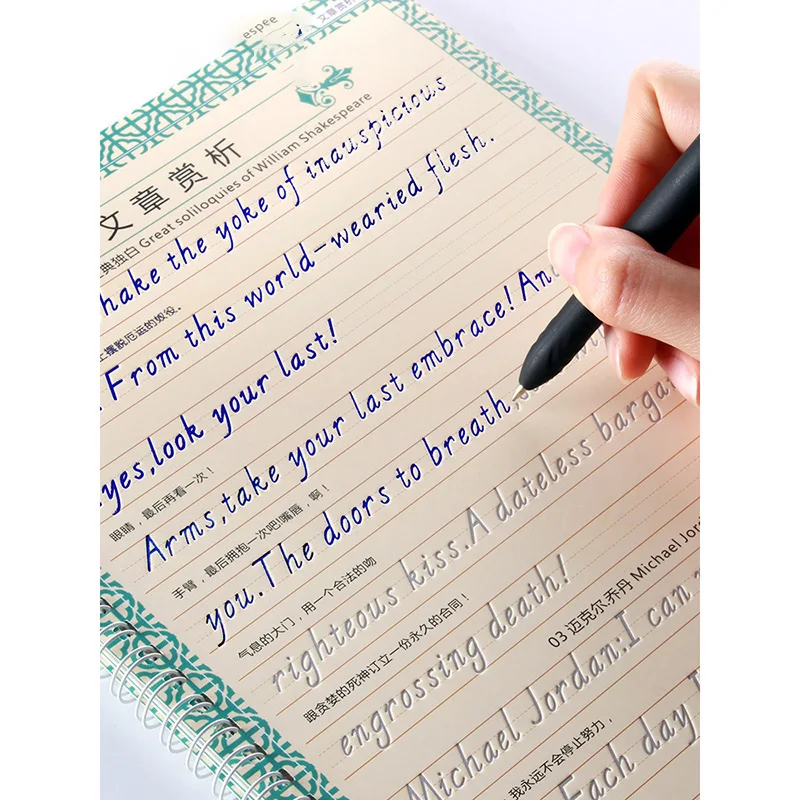 espee
文章赏析
文章赏析
典独白 Great soliloquies of William Shakespeare
hake the yoke of inauspicious
上摆脱厄运的奴役。
From this world-wearied flesh.
yes,look your last!
眼睛，最后再看一次！
Arms,take your last embrace! An
手臂，最后拥抱一次吧!嘴唇，啊！
you. The doors to breath,
气息的大门，用一个合法的吻
righteous kiss. A dateless bargai
跟贪婪的死神订立一份永久的合同！
engrossing death!
03 迈克尔.乔丹 Michael Jor
Michael Jordan:I can
我永远不会停止努力，
Each day